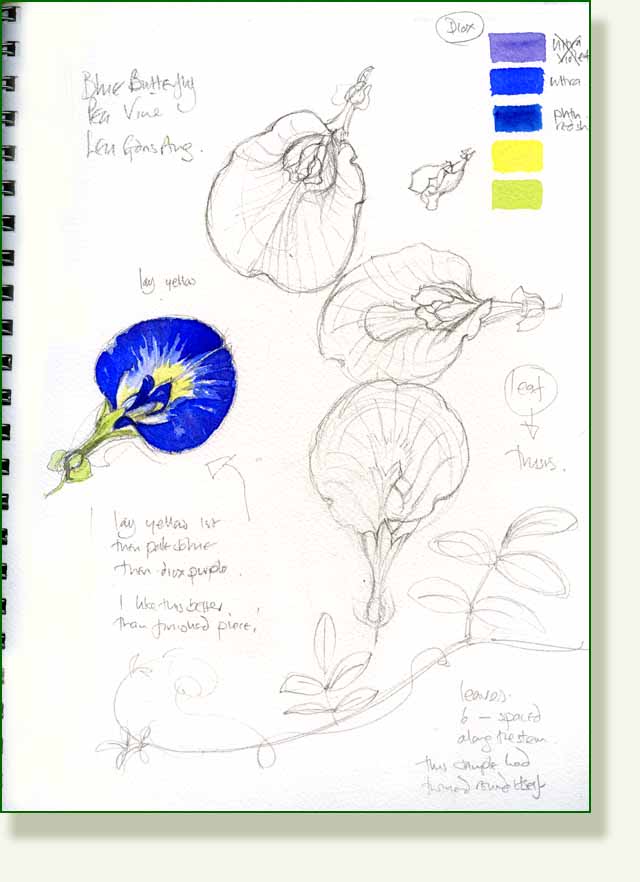 Diox
ultra
violet
ultra
phth.
redsh
Blue Butterfly
Pea Vine
lay yellow
leaf
lay yellow 1st
then pale blue
then diox purple.
I like this better
than finished piece!
leaves.
6 — spaced
along the stem.
this sample had
turned round itself